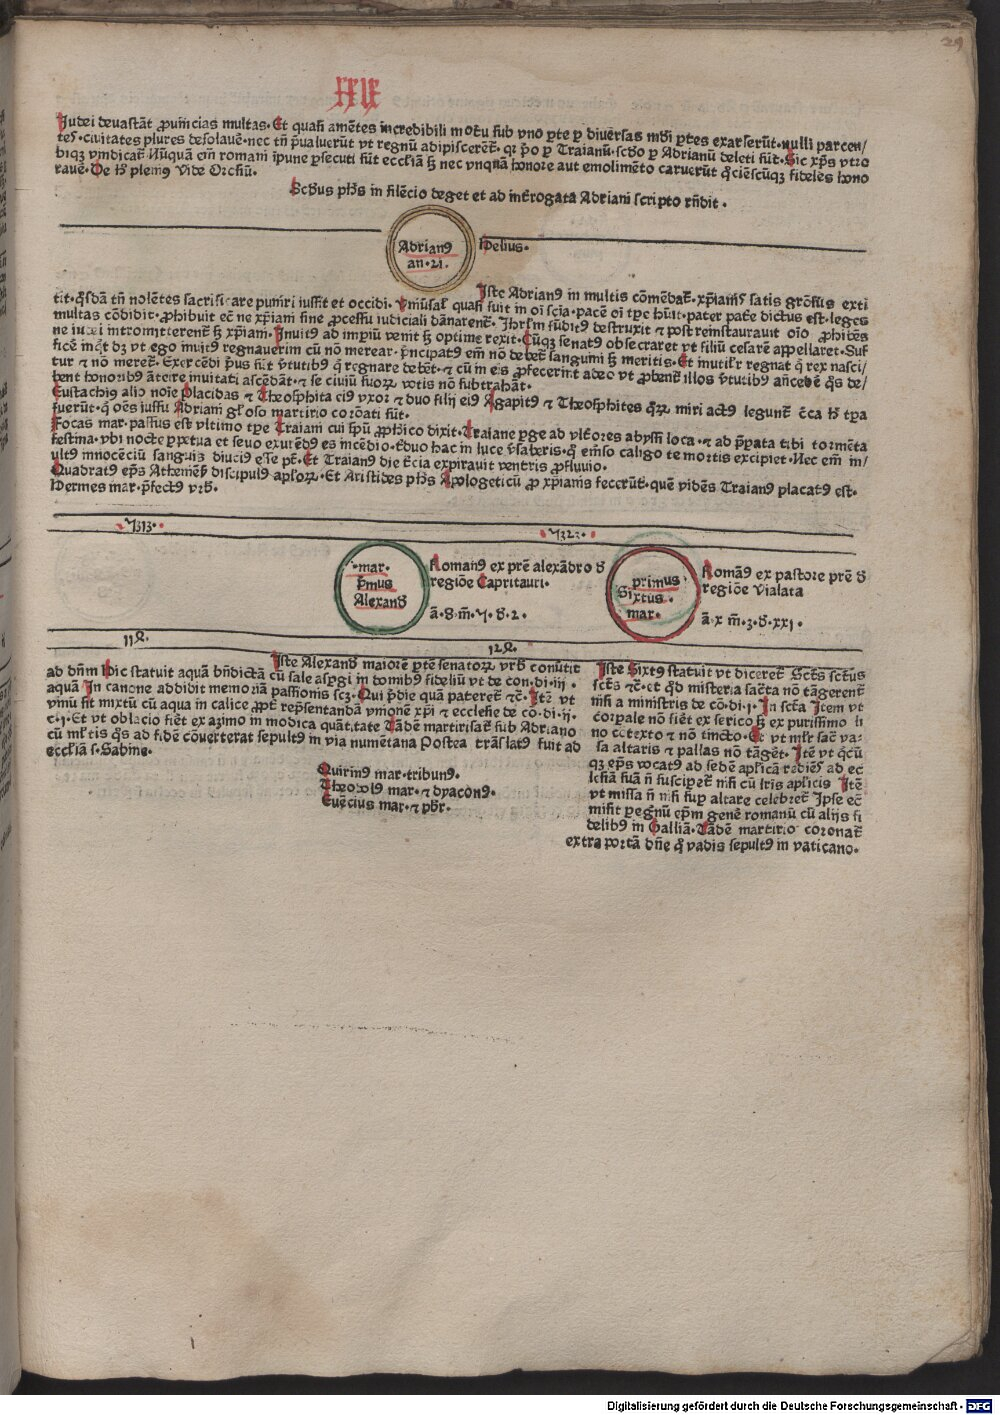 29
XXIX
Iudei deuastāt ꝓuīncias multas. Et quasi amētes incredibili motu sub vno tꝑe ꝑ diuersas mūdi ꝑtes exarserūt. nulli parcen/
tes. ciuitates plures desolauē. nec tn̄ p̄ualuerūt vt regnū adipiscerēt. qr p̄o ꝑ Traianū. scd̄o ꝑ Adrianū deleti sūt. Sic xp̄s vtro
biqꝫ vindicat. Nūquā em̄ romani īpune ꝑsecuti sūt eccl̄iā ſꝫ nec vnquā honore aut emolimēto caruerūt q̄ciēscūqꝫ fideles hono
rauē. De h̄ plenius vide Orosiū.
Scd̄us ph̄s in silēcio deget et ad int̄rogata Adriani scripto rn̄dit.
Adrianꝰ
an. 21.
Helius.
Iste Adrianꝰ in multis cōmēdat̄. xp̄ianis satis grōsus exti
tit. q̄sdā tn̄ nolētes sacrificare puniri iussit et occidi. vniūsal quasi fuit in oī scīa. pacē oī tꝑe h̄uit. pater pat̄e dictus est. leges
multas cōdidit. ꝓhibuit ec̄ ne xp̄iani sine ꝓcessu iudiciali dānarent̄. Ihrl̄m sūdit̄ destruxit et post reinstaurauit oīo ꝓhibēs
ne iudei intromitterent̄ ſꝫ xp̄iani. Inuitꝰ ad imꝑiū venit ſꝫ optime rexit. Cūqꝫ senatꝰ obsecraret vt filiū cesarē appellaret. Suf
ficē inqͥt dꝫ vt ego inuitꝰ regnauerim cū nō merear. p̄ncipatꝰ em̄ nō debet̄ sanguini ſꝫ meritis. Et inutil̄r regnat q̄ rex nasci/
tur ⁊ nō meret̄. Exercēdi p̄us sūt v̄tutibꝰ q̄ regnare debēt. ⁊ cū in eis ꝓfecerint adeo vt ꝓbent̄ illos v̄tutibꝰ añcedē q̄s de/
bent honoribꝰ āteire inuitati ascēdāt. ⁊ se ciuiū suoꝝ votis nō subtrahāt.
Eustachiꝰ alio noīe Placidas ⁊ Theosphita eiꝰ vxor ⁊ duo filij eiꝰ Agapitꝰ ⁊ Theosphites q̄ꝝ miri actꝰ legunt̄ c̄ca h̄ tꝑa
fuerūt. q̄ oēs iussu Adriani gl̄oso martirio corōati sūt.
Focas mar. passus est vltimo tꝑe Traiani cui sp̄u ꝓph̄ico dixit. Traiane ꝑge ad vlt̄ores abyssi loca. ⁊ ad p̄pata tibi tormēta
festina. vbi nocte ꝑpetua et seuo exurēdꝰ es incēdio. educ hac in luce v̄saberis. q̄ em̄so caligo te mortis excipiet. Nec em̄ in/
vltꝰ innocēciū sanguis diuciꝰ esse pt̄. Et Traianꝰ die t̄cia expirauit ventris ꝓfluuio.
Quadratꝰ ep̄s Atheniēs̄ discipulꝰ apl̄oꝝ. Et Aristides ph̄s Apologeticū ꝓ xp̄ianis fecerūt. quē vidēs Traianꝰ placatꝰ est.
Hermes mar. p̄fectꝰ vrb̄.
.7313.
.7323.
.mar.
p̄mus
Alexand̄
Romanꝰ ex pr̄e alexādro d̄
regiōe Capritauri.
ā. 8. m̄. 7. d̄. 2.
primus
Sixtus.
mar.
Romāꝰ ex pastore pr̄e d̄
regiōe Vialata
ā. x m̄. 3. d̄. xxi.
112.
122.
Iste Alexand̄ maiorē ꝑtē senatoꝝ vrb̄ conūtit
ad dn̄m Hic statuit aquā bn̄dictā cū sale asꝑgi in domibꝰ fideliū vt de con. di. iij.
aquā In canone addidit memoriā passionis scꝫ. Qui p̄die quā pateret̄ ⁊c̄. Itē vt
vinū sit mixtū cū aqua in calice ꝓpt̄ rep̄sentandā vnionē xp̄i ⁊ ecclesie de cō. di. ij.
c. i. Et vt oblacio fiēt ex azimo in modica quātitate Tādē martirisat̄ sub Adriano
cū ml̄tis q̄s ad fidē cōuerterat sepultꝰ in via numētana Postea trāslatꝰ fuit ad
eccl̄iā s. Sabine.
Iste Sixtꝰ statuit vt diceret̄. Sct̄s sctūs
sct̄s ⁊c̄. et q̄d misteria sac̄ta nō tāgerent̄
nisi a ministris de cō. di. i. In sct̄a Item vt
corpale nō fiēt ex serico ſꝫ ex purissimo li
no cōtexto ⁊ nō tincto. Et vt ml̄r sac̄ va
sa altaris ⁊ pallas nō tāget̄. Itē vt q̄cū
qꝫ ep̄s vocatꝰ ad sedē aplicā rediēs̄ ad ec
clesiā suā n̄ suscipet̄ nisi cū lr̄is aplicis Itē
vt missa n̄ nisi sup̄ altare celebret̄ Ipse ec̄
misit ꝑegͥnū ep̄m genē romanū cū alijs fi
delibꝰ in Galliā. Tādē martirio coronat̄
extra portā dn̄e q̄ vadis sepultꝰ in vaticano.
Quirinꝰ mar. tribunꝰ.
Theodolꝰ mar. ⁊ dyaconꝰ.
Euēcius mar. ⁊ pb̄r.
Digitalisierung gefördert durch die Deutsche Forschungsgemeinschaft - DFG